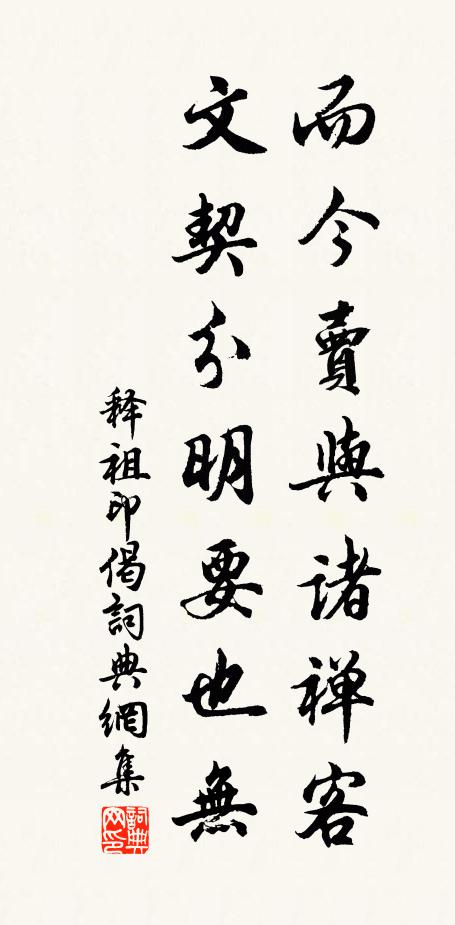 而今賣與諸禅客
文契分明要也無
释祖印偈詞典網集
詞典网印